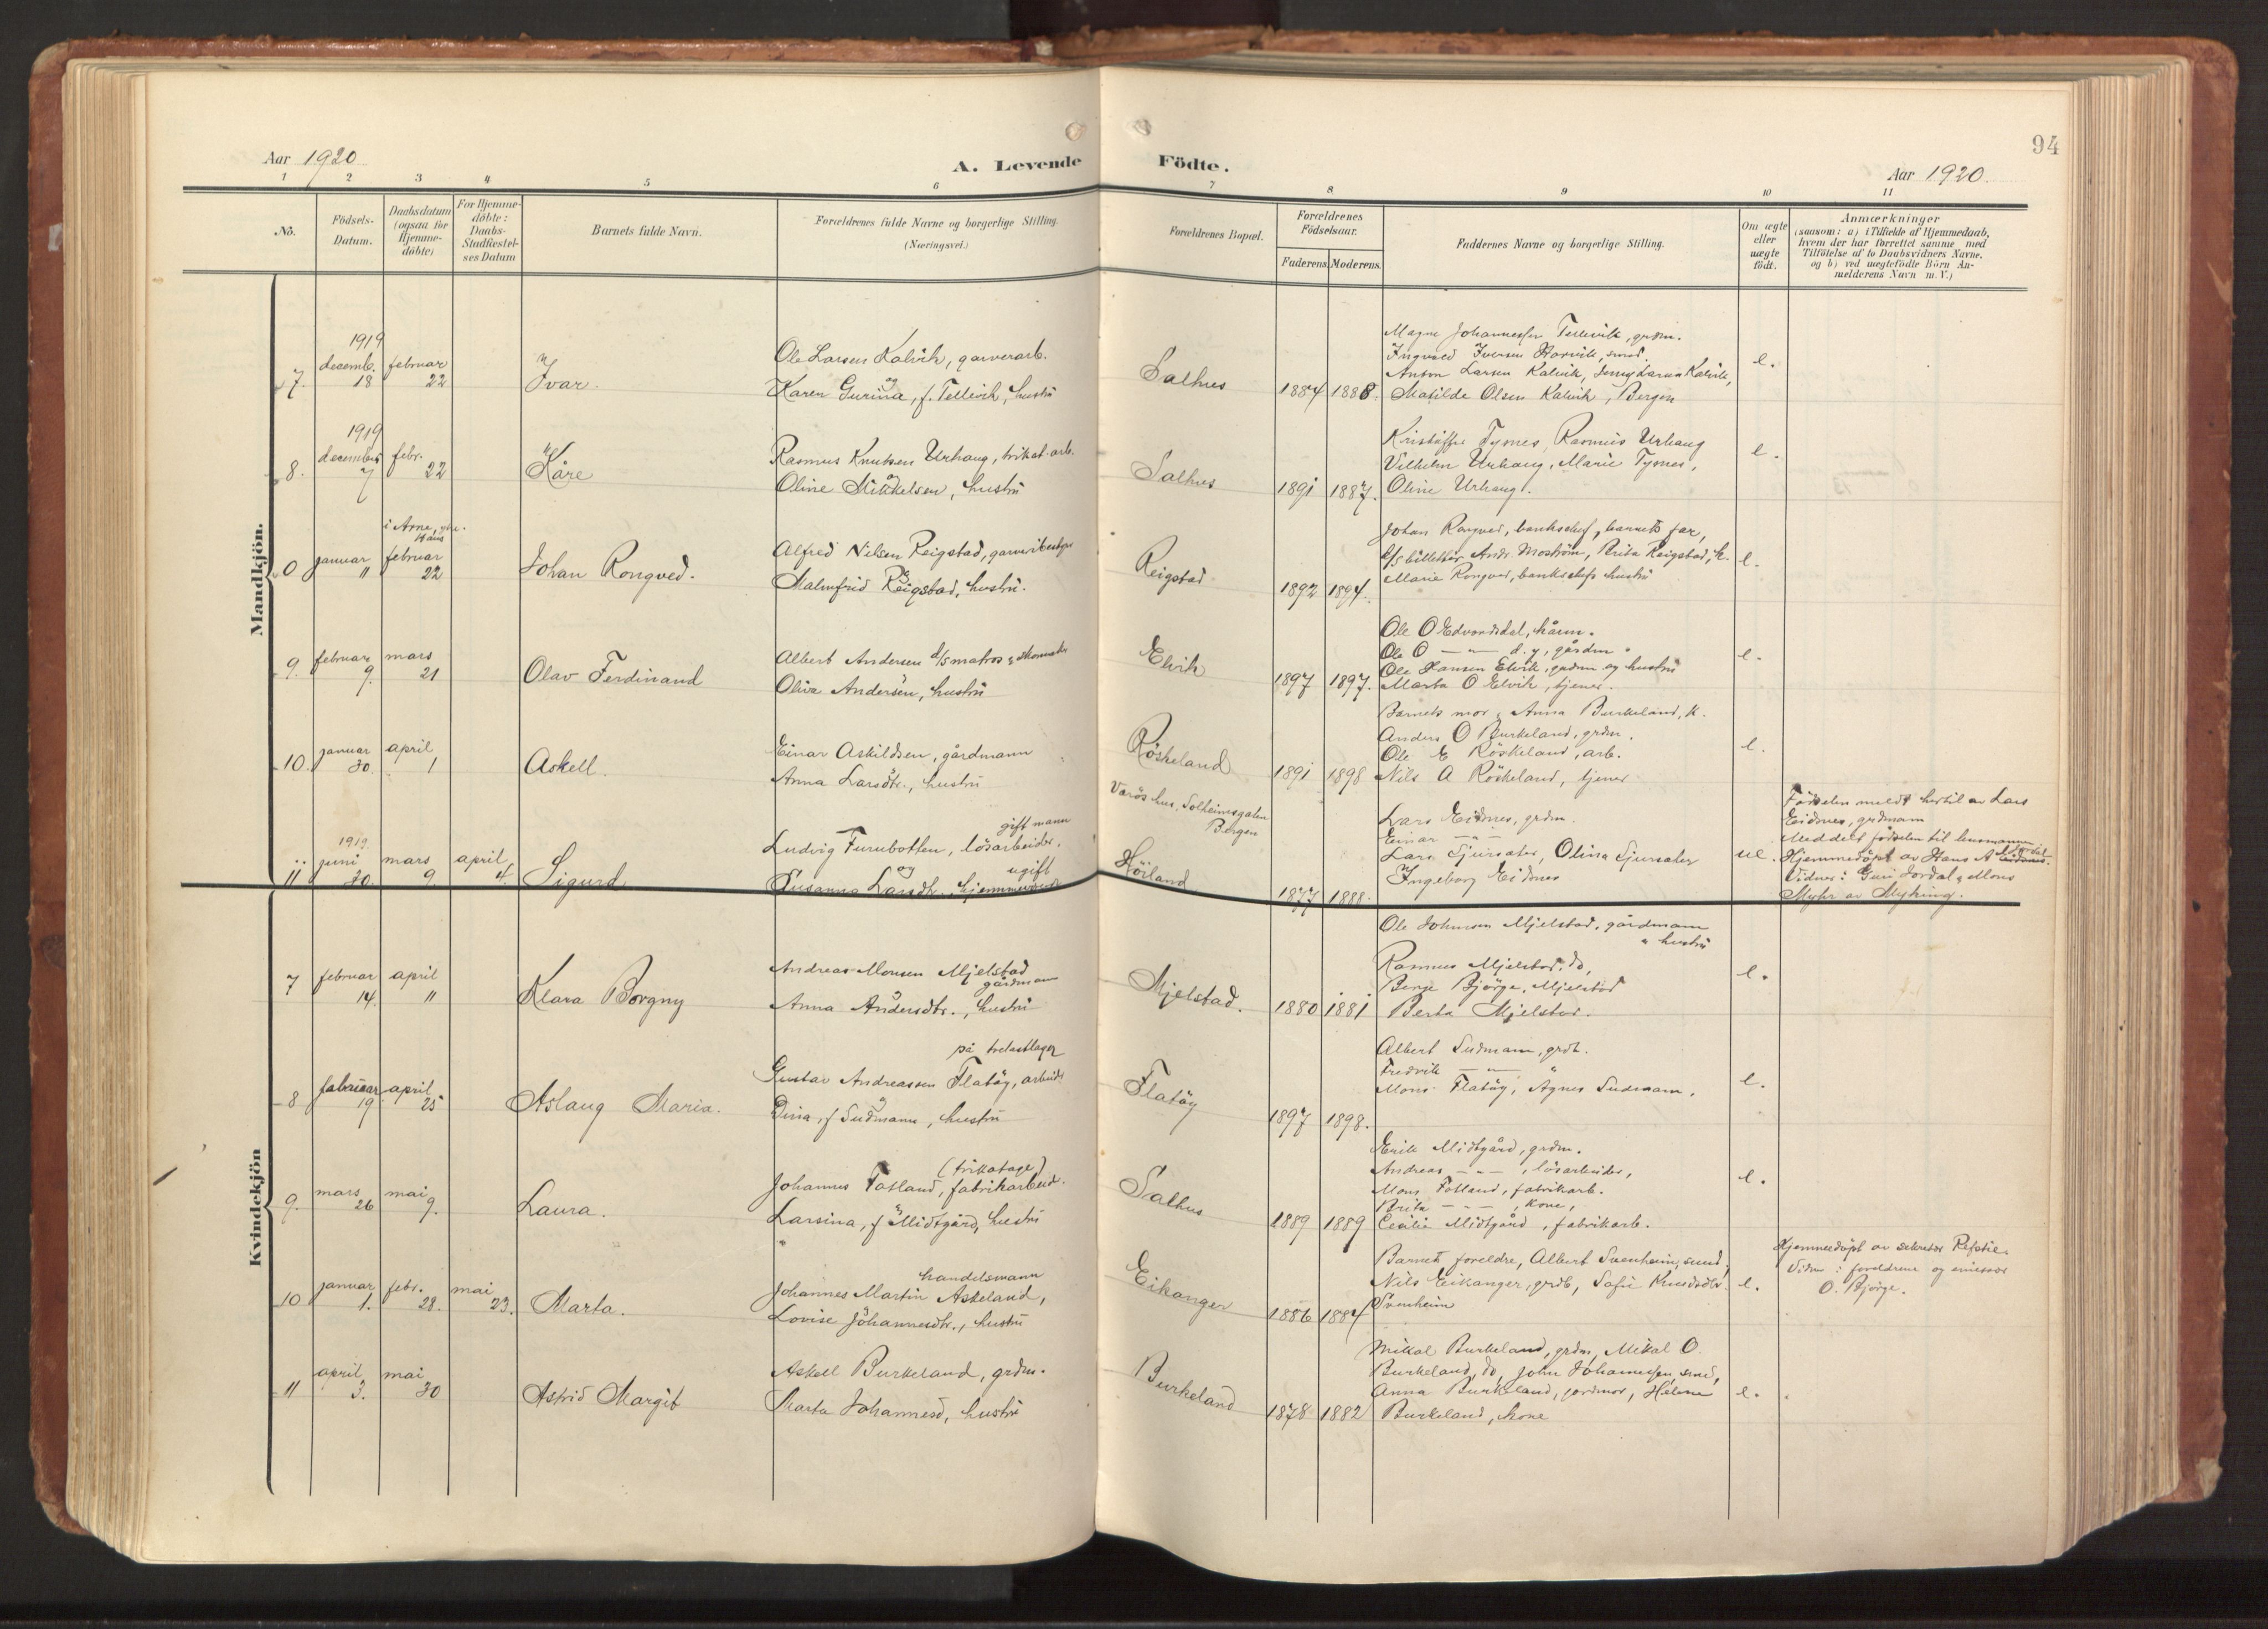 94
Aar 1920
A. Levende Födte.
Aar 1920.
1 2 3 4 5 6 7 8 9 10 11
No.
Födsels-
Datum.
Daabsdatum
(ogsaa for
Hjemme-
döbte)
For Hjemme-
döbte:
Daabs-
Stadfæstel-
ses Datum
Barnets fulde Navn.
Forældrenes fulde Navne og borgerlige Stilling.
(Næringsvei.)
Forældrenes Bopæl.
Forældrenes
Födselsaar.
Faderens. Moderens.
Faddernes Navne og borgerlige Stilling.
Om ægte
eller
uægte
födt.
Anmærkninger
(saasom: a) i Tilfælde af Hjemmedaab,
hvem der har forrettet samme med
Tilföielse af to Daabsvidners Navne.
og b) ved uægtefödte Börn An-
melderens Navn m.V.)
Mandkjön.
7.
1919
decemb.
18
februar
22
Ivar.
Ole Larsen Kalvik, garverarb.
og
Karen Gurina, f. Tellevik, hustru
Salhus
1884 1888.
Magne Johannessen Tellevik, grdm.
Ingvald Iversen Horvik, smed.
Anton Larsen Kalvik, Jenny Larsen Kalvik,
Matilde Olsen Kalvik, Bergen
e.
8.
1919
december
7
febr.
22
Kåre
Rasmus Knutsen Urhaug, trikot.arb.
og
Oline Mikkelsen, hustru
Salhus
1891 1887.
Kristoffer Tysnes, Rasmus Urhaug
Vilhelm Urhaug, Marie Tysnes,
Oline Urhaug.
e.
0
januar
11
i Arne,
Haus
februar
22
Johan Rongved.
Alfred Nilsen Reigstad, garveribestyr
og
Malmfrid Reigstad, hustru.
Reigstad
1892 1894.
Johan Rongved, bankchef, barnets far,
d/s billettör Andr. Moström, Brita Reigstad, k.
Marie Rongved, bankchefs hustru
e.
9.
februar
9.
mars
21
Olav Ferdinand
Albert Andersen d/s matros & skomaker
Oliva Andersen, hustru
Elvik
1897 1897.
Ole O Edvardsdal, kårm.
Ole O — " — d.y, gårdm.
Ole Hansen Elvik, grdm og hustru
Marta O Elvik, tjener.
e.
10.
januar
30.
april
1
Askell.
Einar Askildsen, gårdmann
Anna Larsdtr., hustru
Röskeland
1891 1898
Barnets mor, Anna Burkeland, k.
Anders O Burkeland, grdm.
Ole E Röskeland, arb.
Nils A Röskeland, tjener
e.
11
1919.
juni
30.
mars
9.
april
4.
Sigurd
gift mann
Ludvig Furubotten, lösarbeider.
og ugift
Susanna Larsdtr.,
Solheimsgaten
Bergen
Höiland
1877 1888.
Lars Eidnes, grdm.
Einar — " —
Lars Sjursæter, Olina Sjursæter
Ingeborg Eidnes
ue.
Födselen meldt hertil av Lars
Eidnes, grdmann
Meddelt födselen til lensmannen
Hjemmedöpt av Hans A
Vidner: Guri Jordal & Mons
Myhr av Myking.
Kvindekjön
7
februar
14.
april
11
Klara Borgny
Andreas Monsen Mjelstad
gårdmann
og
Anna Andersdtr., hustru
Mjelstad.
1880 1881
Ole Johnsen Mjelstad, gårdmann
" hustru
Rasmus Mjelstad, do,
Berge Bjørge, Mjelstad
Berta Mjelstad.
e.
8
februar
19
april
25
Aslaug Maria.
på trelastlager
Gustav Andreassen Flatöy, arbeid.
og
Dina, f Sudmann, hustru
Flatöy
1897 1898.
Albert Sudmann, grdb.
Fredrik — " — "
Mons Flatöy, Agnes Sudmann.
e.
9.
mars
26
mai
9.
Laura.
(trikotage)
Johannes Totland, fabrikarbeid.
og
Larsina, f Midtgård, hustru
"
Salhus
1889 1889
Erik Midtgård, grdm.
Andreas — " — , lösarbeider,
Mons Totland, fabrikarb.
Brita — " — , kone,
Cecilie Midtgård, fabrikarb.
e.
10
januar
1.
febr.
28.
mai
23.
Marta.
handelsmann
Johannes Martin Askeland,
Lovise Johannesdtr., hustru
Eikanger
1886 1884
Barnets foreldre, Albert Svenheim, smed,
Nils Eikanger, grdb, Sofie Knudsdtr.
Svenheim
e.
Hjemmedöpt av sekretær Refstie.
Vidner: foreldrene og emissær
O. Bjørge.
11
april
3.
mai
30
Astrid Margit
Askell Burkeland, grdm.
Marta Johannesd, hustru
Burkeland
1878 1882
Mikal Burkeland, grdm, Mikal O.
Burkeland, do, John Johannessen, smed,
Anna Burkeland, jordmor, Helene
Burkeland, kone
e.